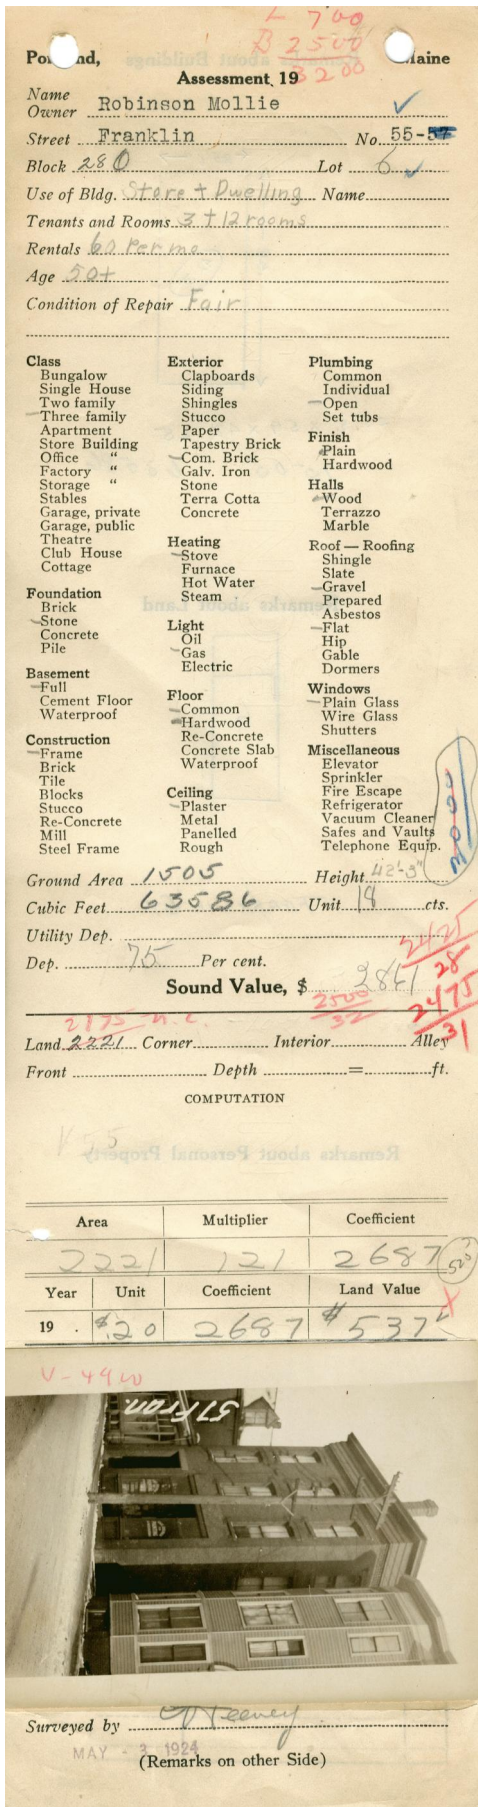 L 700
B 2500
3200
Portland, Maine
Assessment, 19
Name
Owner Robinson Mollie
Street Franklin No. 55-57
Block 280 Lot 6
Use of Bldg. Store + Dwelling Name
Tenants and Rooms 3 + 12 rooms
Rentals 60 Per mo
Age 50+
Condition of Repair Fair
Class
Bungalow
Single House
Two family
Three family
Apartment
Store Building
Office "
Factory "
Storage "
Stables
Garage, private
Garage, public
Theatre
Club House
Cottage
Foundation
Brick
Stone
Concrete
Pile
Basement
Full
Cement Floor
Waterproof
Construction
Frame
Brick
Tile
Blocks
Stucco
Re-Concrete
Mill
Steel Frame
Exterior
Clapboards
Siding
Shingles
Stucco
Paper
Tapestry Brick
Com. Brick
Galv. Iron
Stone
Terra Cotta
Concrete
Heating
Stove
Furnace
Hot Water
Steam
Light
Oil
Gas
Electric
Floor
Common
Hardwood
Re-Concrete
Concrete Slab
Waterproof
Ceiling
Plaster
Metal
Panelled
Rough
Plumbing
Common
Individual
Open
Set tubs
Finish
Plain
Hardwood
Halls
Wood
Terrazzo
Marble
Roof — Roofing
Shingle
Slate
Gravel
Prepared
Asbestos
Flat
Hip
Gable
Dormers
Windows
Plain Glass
Wire Glass
Shutters
Miscellaneous
Elevator
Sprinkler
Fire Escape
Refrigerator
Vacuum Cleaner
Safes and Vaults
Telephone Equip.
3000
Ground Area 1505 Height 42'-3"
Cubic Feet 63586 Unit 18 cts.
Utility Dep.
2425
28
Dep. 75 Per cent.
Sound Value, $ 2861
2500
32
2475
31
2175 n.c.
Land 2221 Corner Interior Alley
Front Depth = ft.
COMPUTATION
Remarks about Personal Property
Area Multiplier Coefficient
2221 121 2687
Year Unit Coefficient Land Value
19 . $.20 2687 $537
V-4900
57 Fran.
Surveyed by
MAY - 3 1924
(Remarks on other Side)